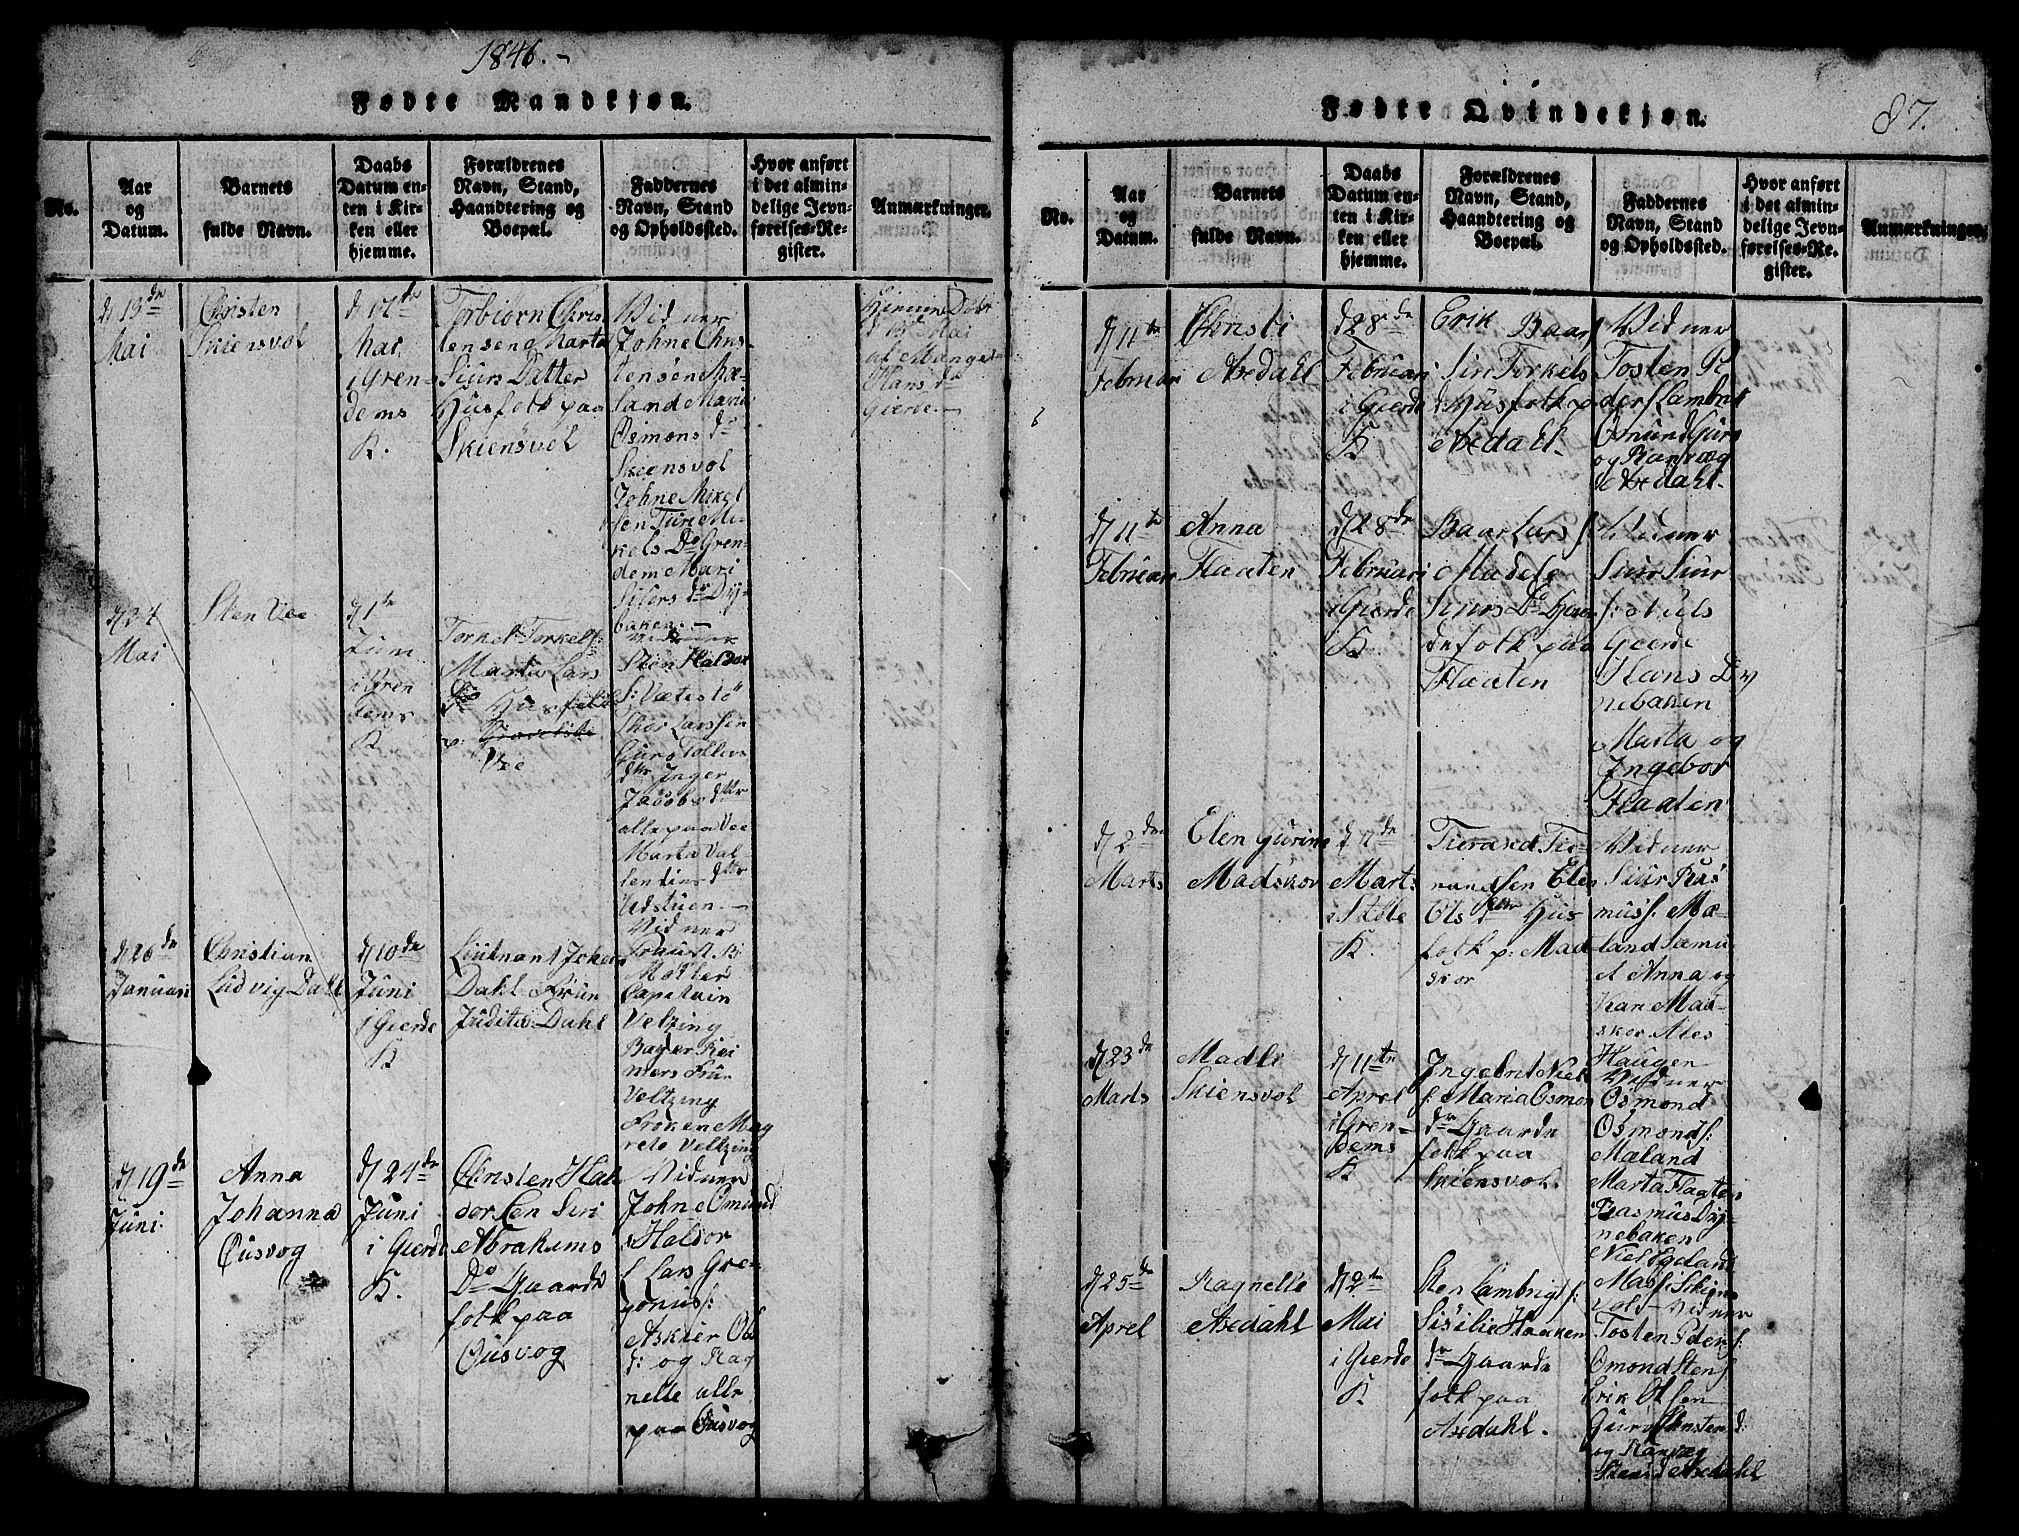 1846.
Fødte Mandkjøn.
No.
Aar
og
Datum.
Barnets
fulde Navn.
Daabs
Datum en-
ten i Kir-
ken eller
hjemme.
Forældrenes
Navn, Stand,
Haandtering og
Boepæl.
Faddernes
Navn, Stand
og Opholdssted.
Hvor anført
i det almin-
delige Jevn-
førelses-Re-
gister.
Anmærkninger.
d 13de
Mai
Christen
Skiensvol
d 17de
Mai
i Gren-
dems
K.
Torbiørn Chris
tensen Marta
Siurs Datter
Husfolk paa
Skiensvol
Vidner
Johne Chris-
tensen Mæ-
land Maria
Osmons dr
Skiensvol
Johne Mikel
sen Turi Mi-
kels Dr Gren-
dem Mari
Silers dr Dy-
baken.-
Hiemme Døbt
d 13 Mai
af Mange
Hans dr
Gierde.-
d 24
Mai
Sten Vee
d 1te
Juni
i Gren
dems
K
Torkel Torkels:
Marta Lars
Dr Husfolk
p:
Vee
Vidner
Sten Haldor
S: Vetestø
Thor Larssen
Guro Tollevs
dtr Inger
Jacobs dtr
alle paa Vee
Marta Val-
lentins dtr
Udstuen.-
d 26de
Januari
Christian
Ludvig Dahl
d 10de
Juni
i Gierde
K
Liutnant Johan
Dahl Frue
Judita Dahl
Vidner
Møller
Capetain
Veltzing
Bager Rei
mers Frue
Veltzing
Frøken Mag
rete Veltzing
d 19de
Juni:
Anna
Johanna
Øusvog
d 24de
Juni
i Gierde
K.
Christen Hal
dorsen Siri
Abrahams
Dr Gaards
folk paa
Øusvog
Vidner
John Omund
Haldor
Lars Gre-
gorius:
Askier Ols
d: og Rag
nelle alle
paa Øusvog
87.
Fødte Qvindekjøn.
No.
Aar
og
Datum.
Barnets
fulde Navn.
Daabs
Datum en-
ten i Kir-
ken eller
hjemme.
Forældrenes
Navn, Stand,
Haandtering og
Boepæl.
Faddernes
Navn, Stand
og Opholdssted.
Hvor anført
i det almin-
delige Jevn-
førelses-Re-
gister.
Anmærkninger.
d 11te
Februar
Christi
Axdahl
d 28de
Februari
i Gierde
K.
Erik Baars
Siri Torkels
d: Husfolk p
Axdahl.
Vidner
Tosten P
ders: Lambrit
Osmund Guro
og Ranvæg
Axdahl.
d 11te
Februar
Anna
Flaaten
d 28de
Februari
i Gierde
K
Baar Lars s
Madele
Siurs Dr Huus
defolk paa
Flaaten
Vidner
Siur Siur
s: Niels
Geerde
Hans Dy
nebaken
Marta og
Ingebor
Flaaten
d 2den
Marts
Elen Gurine
Madskor
d 7de
Marts
i Støle
K.
Tierand Tie-
randsen Elen
Ols dtr Hus
folk p: Mad
skor
Vidner
Siur Ras
muss: Mæ-
land Samu-
el Anna og
Kari Mad-
skor Ales
Haugen
d 23de
Marts
Madli
Skiensvol
d 11te
Aprel
i Gren-
dems
K
Ingebrit Niels
s: Maria Osmon
dr Gaards
folk paa
Skiensvol.
Vidner
Osmond
Osmonds:
Mæland
Marta Flaaten
Rasmus Dy-
nebaken
Niels Egeland
Mass: Skiens
vol-
d 25de
Aprel
Ragnelle
Axdahl
d 2te
Mai
i Gierde
K.
Sten Lambrigs:
Sisilie Haaken
dr Gaards
folk paa
Axdahl.
Vidner
Tosten Peders:
Omond Stens
Erik Olsen
Guri Christen d:
og Ranvæg
Axdahl